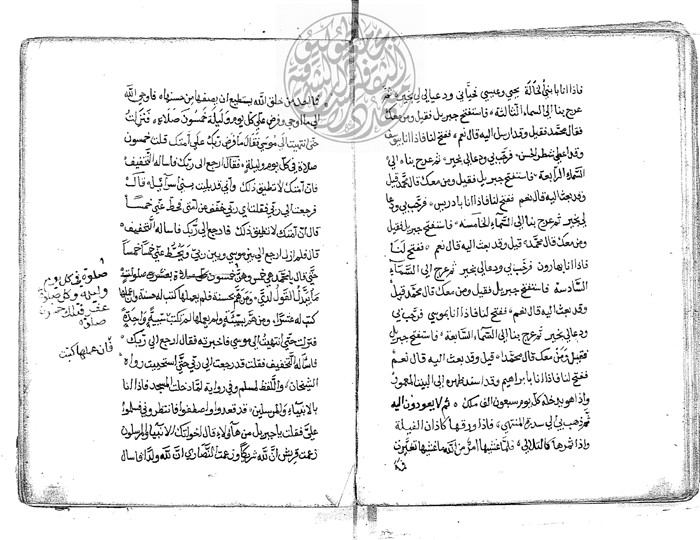 فاذا انا بابني الخالة يحيى وعيسى فحياني ودعيا لي بخير ثم
عرج بنا الى السماء الثالثة فاستفتح جبريل فقيل ومن معك
قال محمد فقيل وقد ارسل اليه قال نعم ففتح لنا فاذا انا بيوسف
وقد اعطي شطر الحسن فرحب بي ودعا لي بخير ثم عرج بنا الى
السماء الرابعة فاستفتح جبريل فقيل ومن معك قال محمد قيل
وقد بعث اليه قال نعم ففتح لنا فاذا انا بادريس فرحب بي ودعا
لي بخير ثم عرج بنا الى السماء الخامسة فاستفتح جبريل فقيل
ومن معك قال محمد قيل وقد بعث اليه قال نعم ففتح لنا
فاذا انا بهارون فرحب بي ودعا لي بخير ثم عرج الى السماء
السادسة فاستفتح جبريل فقيل ومن معك قال محمد قيل
وقد بعث اليه قال نعم ففتح لنا فاذا انا بموسى فرحب بي
ودعا لي بخير ثم عرج بنا الى السماء السابعة فاستفتح جبريل
فقيل ومن معك قال محمد قيل وقد بعث اليه قال نعم
ففتح لنا فاذا انا بابراهيم وقد اسند ظهره الى البيت المعمور
واذا هو يدخله كل يوم سبعون الف ملك ثم لا يعودون اليه
ثم ذهب بي الى سدرة المنتهى فاذا ورقها كاذان الفيلة
واذا ثمرها كالقلال فلما غشيها من امر الله ما غشيها تغيرت
فما احد من خلق الله يستطيع ان يصفها من حسنها فاوحى الله
الي ما اوحى وفرض علي كل يوم وليلة خمسون صلاة فنزلت
حتى انتهيت الى موسى فقال ما فرض ربك على امتك قلت خمسون
صلاة في كل يوم وليلة فقال ارجع الى ربك فاساله التخفيف
فان امتك لا تطيق ذلك واني قد بليت بني اسرائيل قال
فرجعت الى ربي فقلت اي ربي خفف عن امتي فحط عني خمسا
قال ان امتك لا تطيق ذلك فارجع الى ربك فاساله التخفيف
قال فلم ازل ارجع الى بين موسى وبين ربي ويحط عني خمسا خمسا
حتى قال يا محمد هي خمس
ما يبدل القول لدي ومن هم بحسنة فلم يعملها كتب له حسنة
كتب له عشرا ومن هم بسيئة ولم يعملها لم تكتب
فنزلت حتى انتهيت الى موسى فاخبرته فقال ارجع الى ربك
فاساله التخفيف فقلت قد رجعت الى ربي حتى استحييت رواه
الشيخان واللفظ لمسلم وفي رواية لما دخلت المسجد فاذا انا
بالانبياء والمرسلين قد
علي فقلت يا جبريل من هؤلاء قال اخوتك الانبياء والمرسلون
زعمت قريش ان لله شريكا وزعمت النصارى ان لله ولدا فاسال
صلوة في كل يوم
وليلة وكل صلاة
عشر فتلك خمسون
صلاة
فان عملها كتبت